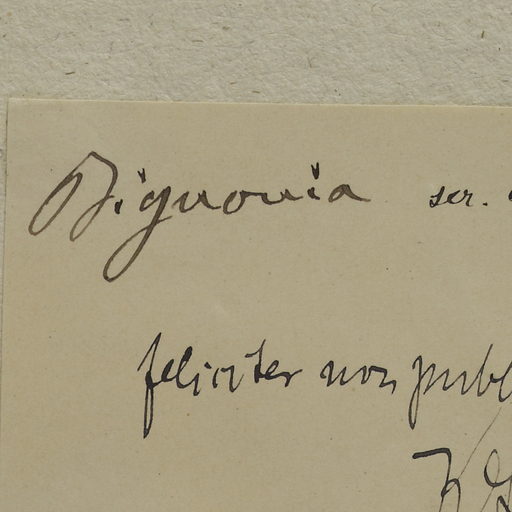 Bignonia ser.
feliciter non publ
K